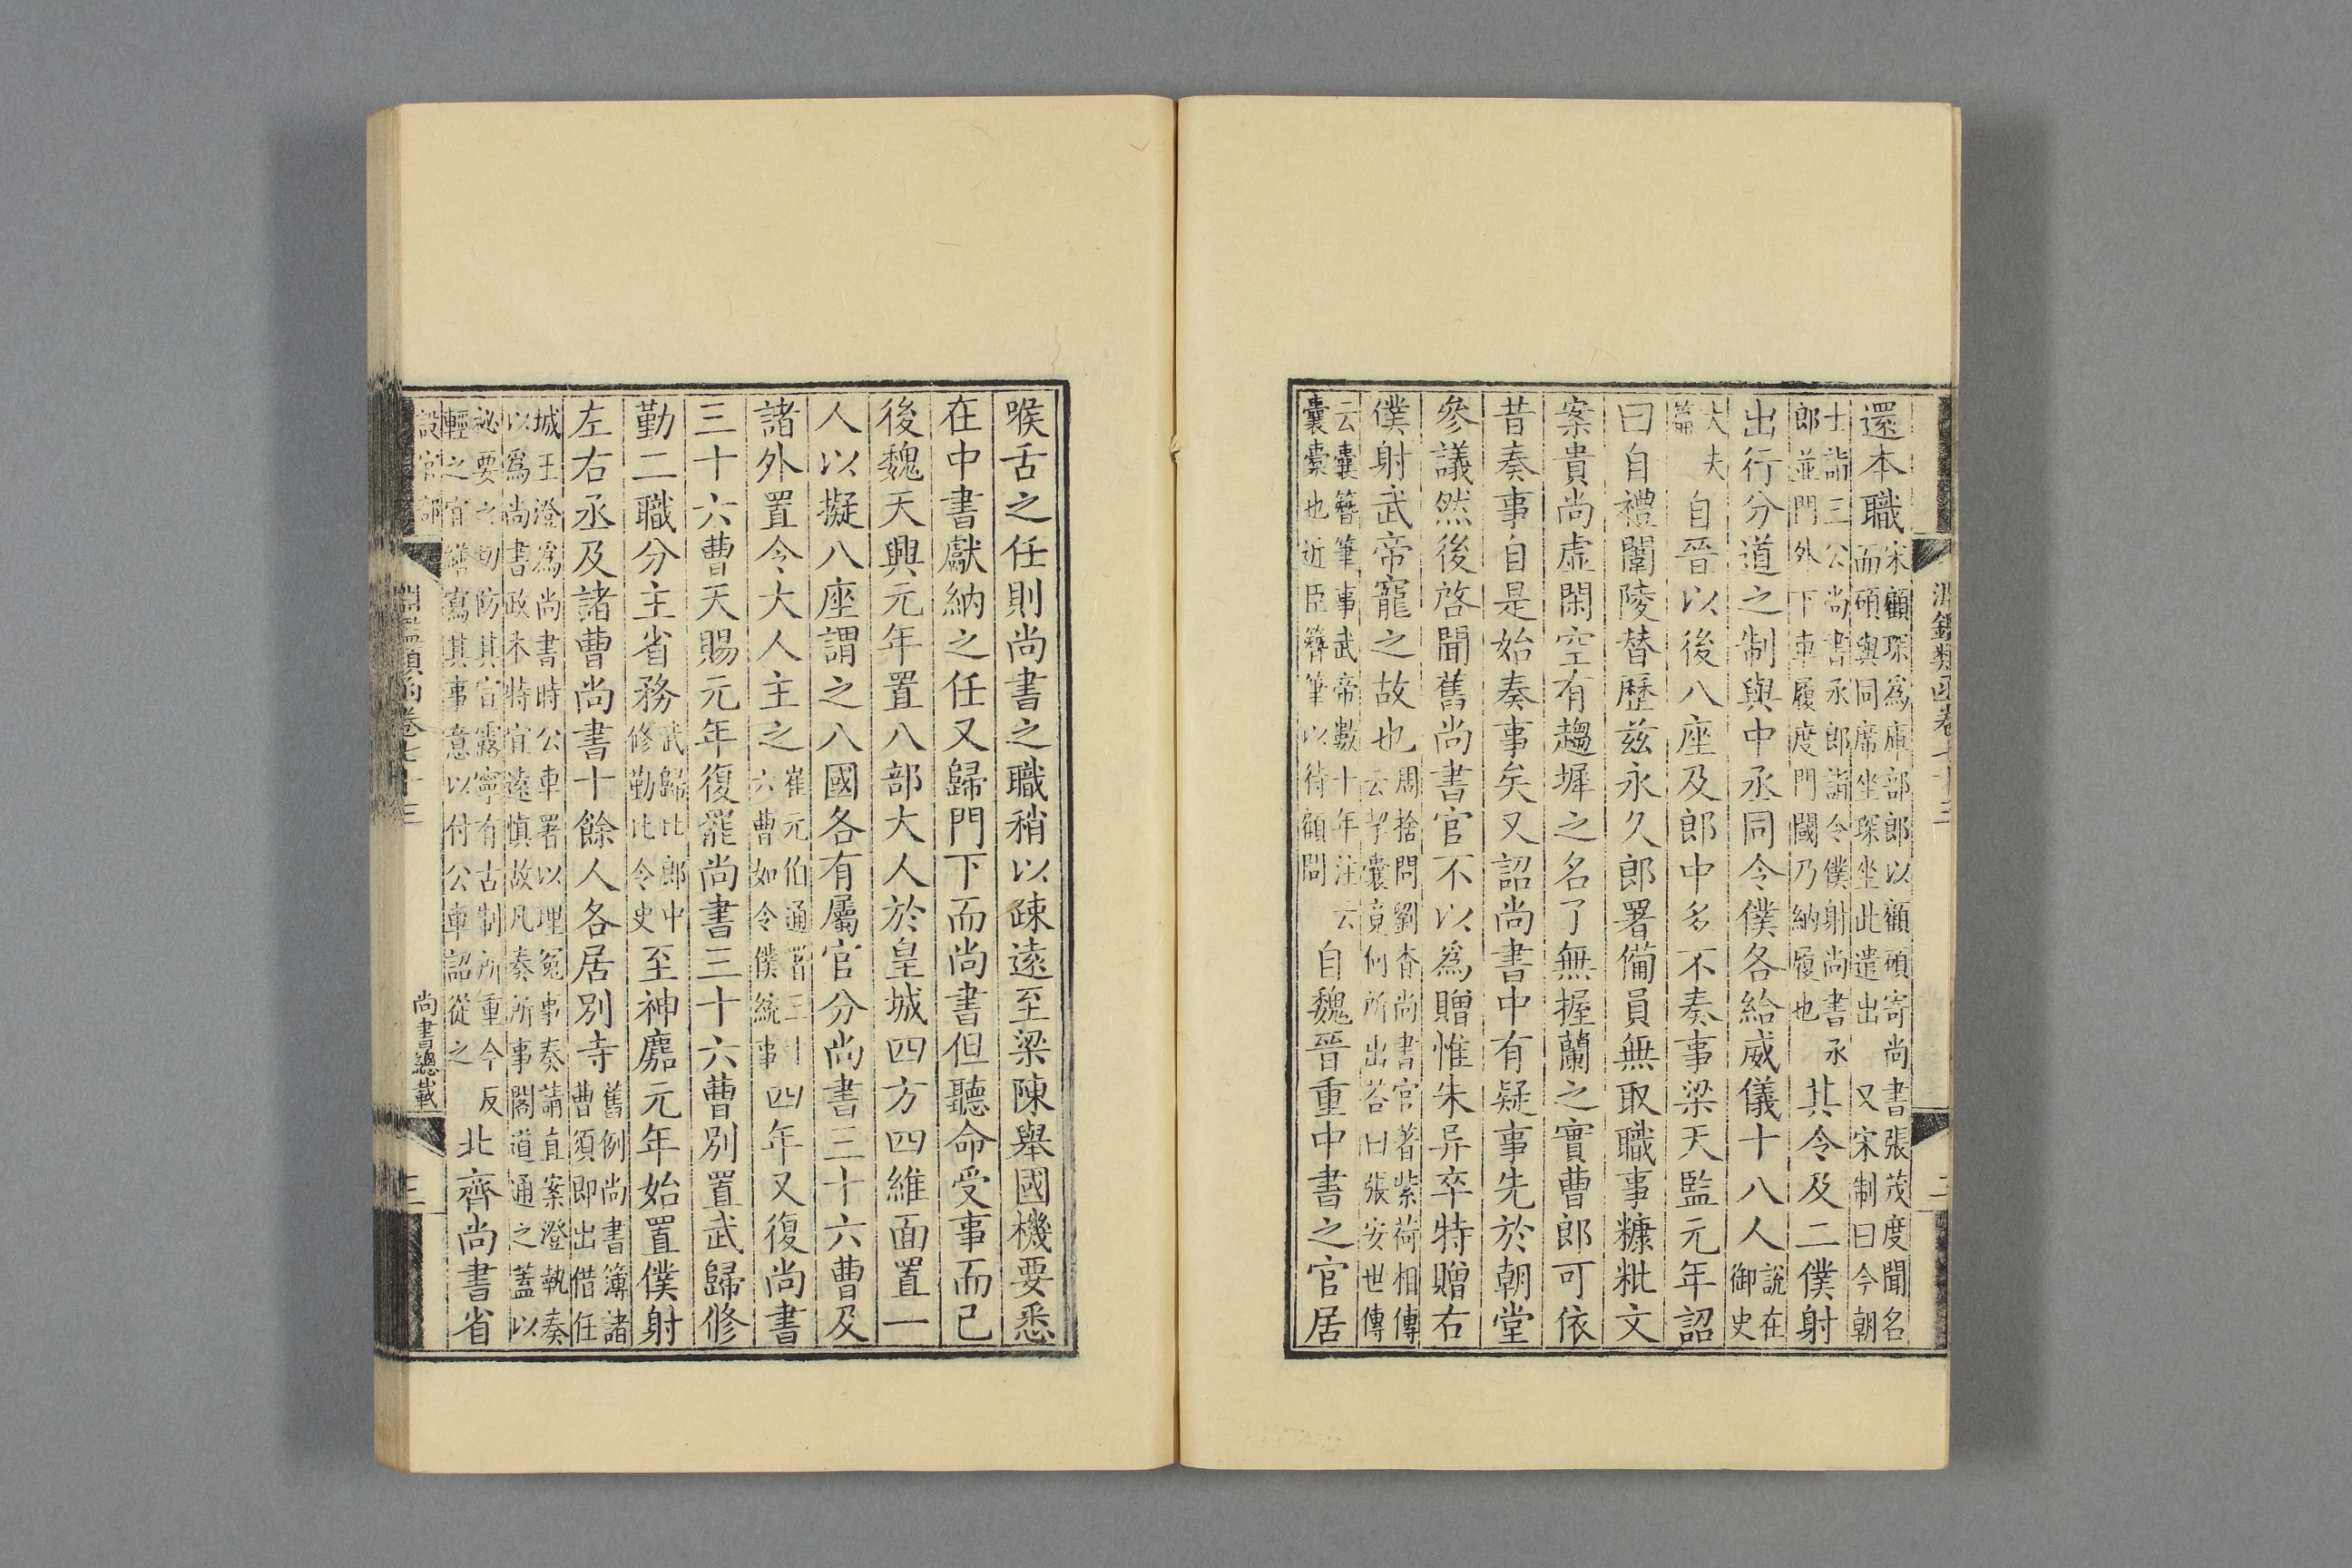 還本職宋顧琛爲庫部郎以顧碩寄尚書張茂度聞名而碩與同席坐琛坐此遣出又宋制曰今朝
士詣三公尚書丞郎詣令僕射尚書丞郎並門外下車履度門閫乃納履也其令及二僕射
出行分道之制與中丞同令僕各給威儀十八人說在御史
大夫篇自晉以後八座及郎中多不奏事梁天監元年詔
曰自禮闈陵替歷茲永久郎署備員無取職事糠粃文
案貴尚虛閑空有趨墀之名了無握蘭之實曹郎可依
昔奏事自是始奏事矣又詔尚書中有疑事先於朝堂
參議然後啓聞舊尚書官不以爲贈惟朱异卒特贈右
僕射武帝寵之故也周捨問劉杳尚書官著紫荷相傳云挈囊竟何所出荅曰張安世傳
云囊簪筆事武帝數十年注云囊橐也近臣簪筆以待顧問自魏晉重中書之官居
淵鑑類函卷七十三
二
喉舌之任則尚書之職稍以疎遠至梁陳舉國機要悉
在中書獻納之任又歸門下而尚書但聽命受事而已
後魏天興元年置八部大人於皇城四方四維面置一
人以擬八座謂之八國各有屬官分尚書三十六曹及
諸外置令大人主之崔元伯通署三十六曹如令僕統事四年又復尚書
三十六曹天賜元年復罷尚書三十六曹別置武歸修
勤二職分主省務武歸比郎中修勤比令史至神䴥元年始置僕射
左右丞及諸曹尚書十餘人各居別寺舊例尚書簿諸曹須即出借任
城王澄爲尚書時公車署以理冤事奏請直案澄執奏以爲尚書政本特宜遠慎故凡奏所事閣道通之蓋以
祕要之切防其宣露寧有古制所重今反輕之宜繕寫其事意以付公車詔從之北齊尚書省
設官部
淵鑑類函卷七十三
尚書總載
三